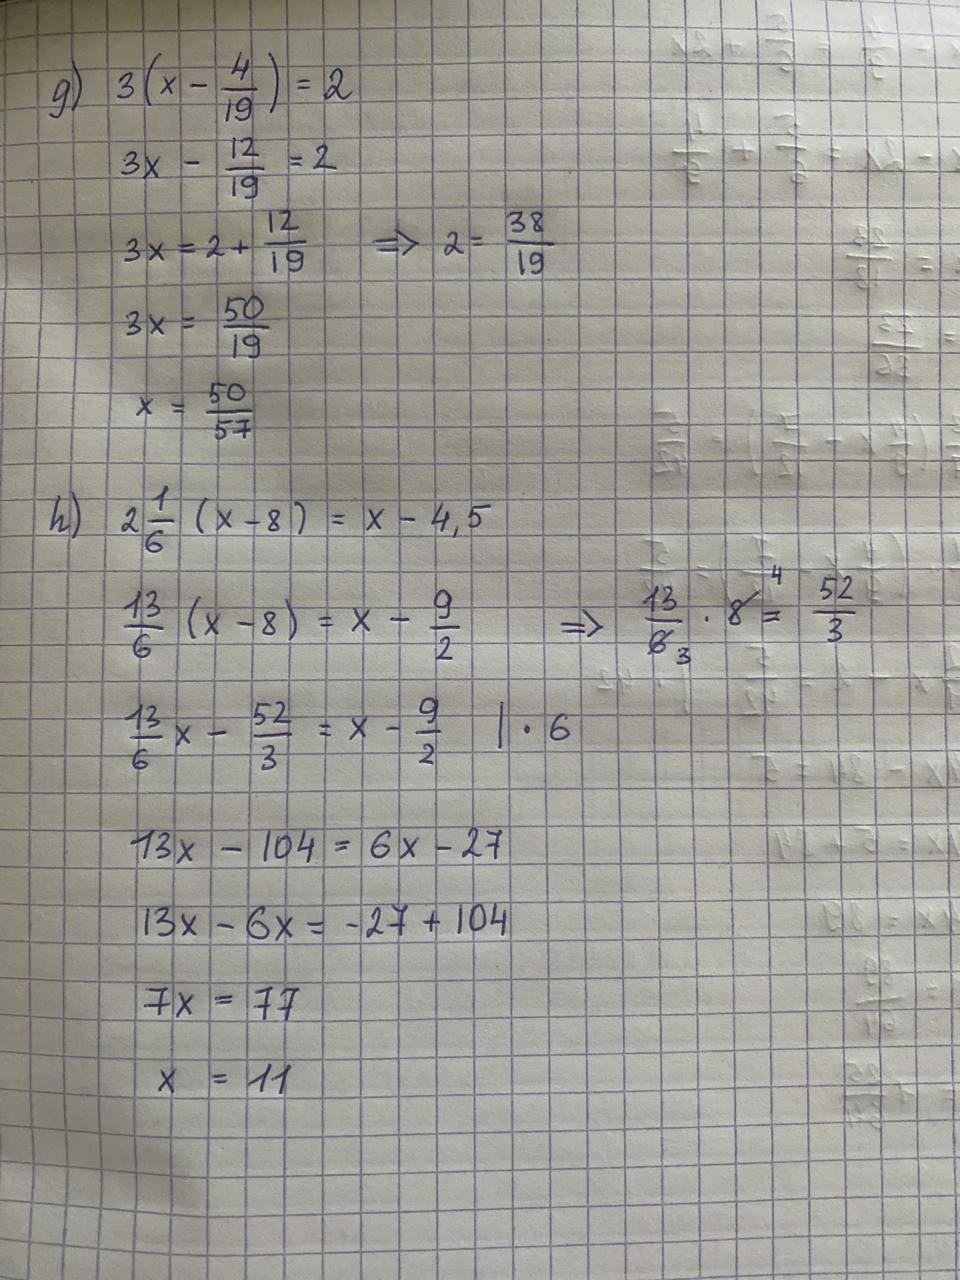 g) 3(x - 4/19) = 2
3x - 12/19 = 2
3x = 2 + 12/19 ⇒ 2 = 38/19
3x = 50/19
x = 50/57
h) 2 1/6 (x - 8) = x - 4,5
13/6 (x - 8) = x - 9/2 ⇒ 13/6 3 · 8 4 = 52/3
13/6 x - 52/3 = x - 9/2 | · 6
13x - 104 = 6x - 27
13x - 6x = -27 + 104
7x = 77
x = 11